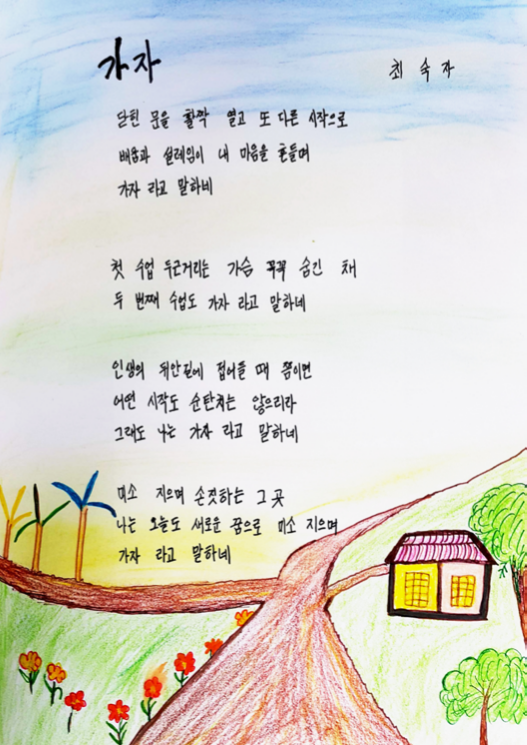 가자
최숙자
닫힌 문을 활짝 열고 또 다른 시작으로
배움과 설레임이 내 마음을 흔들며
가자 라고 말하네
첫 수업 두근거리는 가슴 꼭꼭 숨긴 채
두 번째 수업도 가자 라고 말하네
인생의 뒤안길에 접어들 때 쯤이면
어떤 시작도 순탄치는 않으리라
그래도 나는 가자 라고 말하네
미소 지으며 손짓하는 그 곳
나는 오늘도 새로운 꿈으로 미소 지으며
가자 라고 말하네